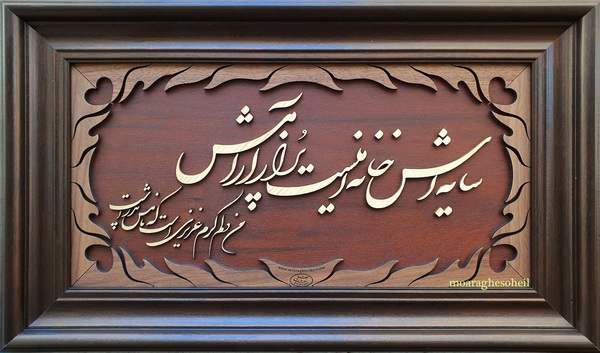 سایه اش خانه امنیست پُر از آرامش
من دلم گرم عزیزیست که نامش پدر است
moaraghesoheil